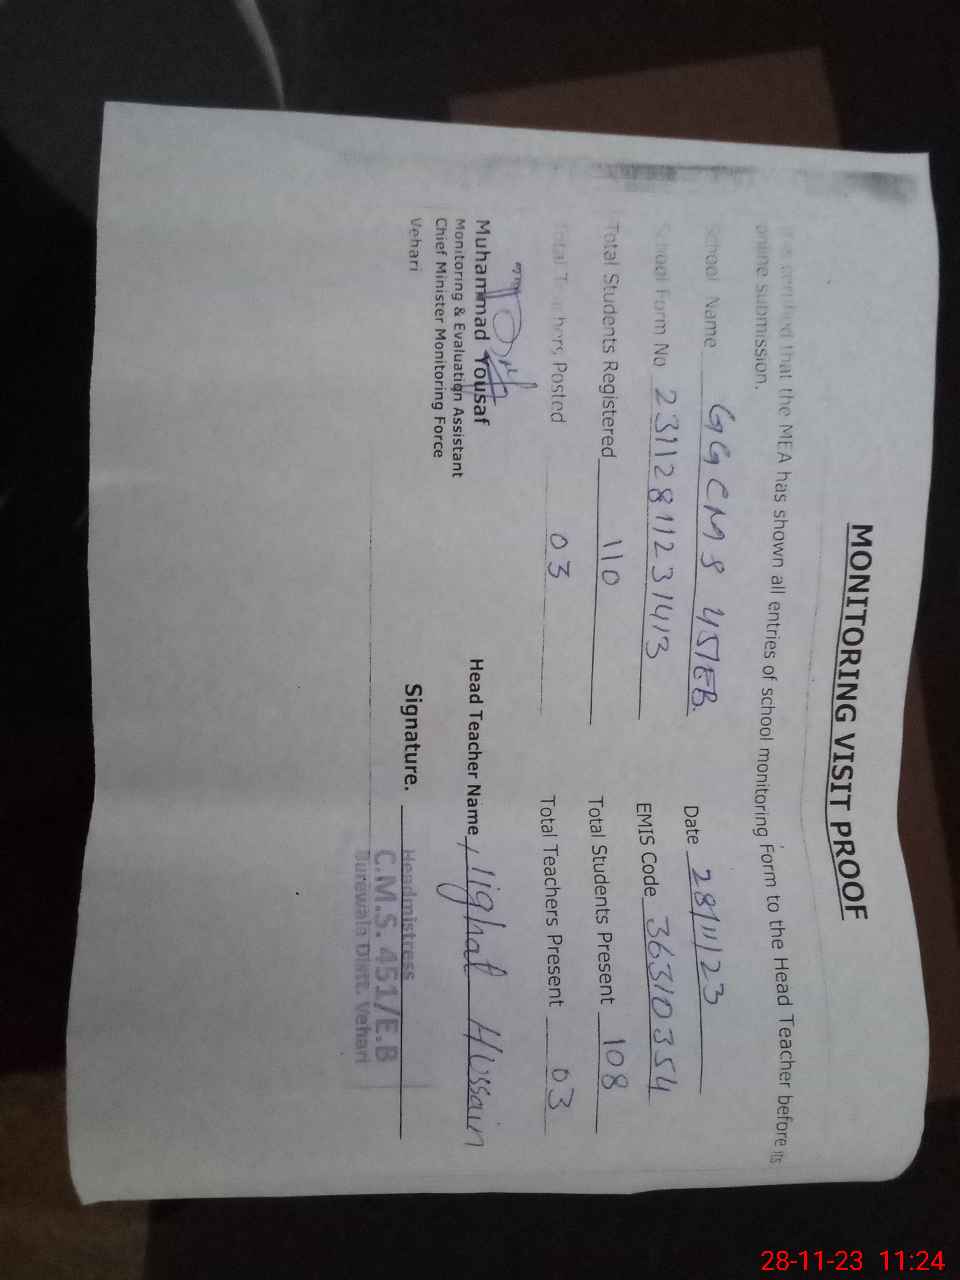 MONITORING VISIT PROOF
It is certified that the MEA has shown all entries of school monitoring Form to the Head Teacher before its
online submission.
School Name GGCMS 451EB. Date 28/11/23
School Form No 23112811231413 EMIS Code 36310354
Total Students Registered 110 Total Students Present 108
Total Teachers Posted 03 Total Teachers Present 03
Muhammad Yousaf Head Teacher Name Hussain
Monitoring & Evaluation Assistant
Chief Minister Monitoring Force Signature.
Vehari
Headmistress
C.M.S. 451/E.B
Burewala Distt. Vehari
28-11-23 11:24